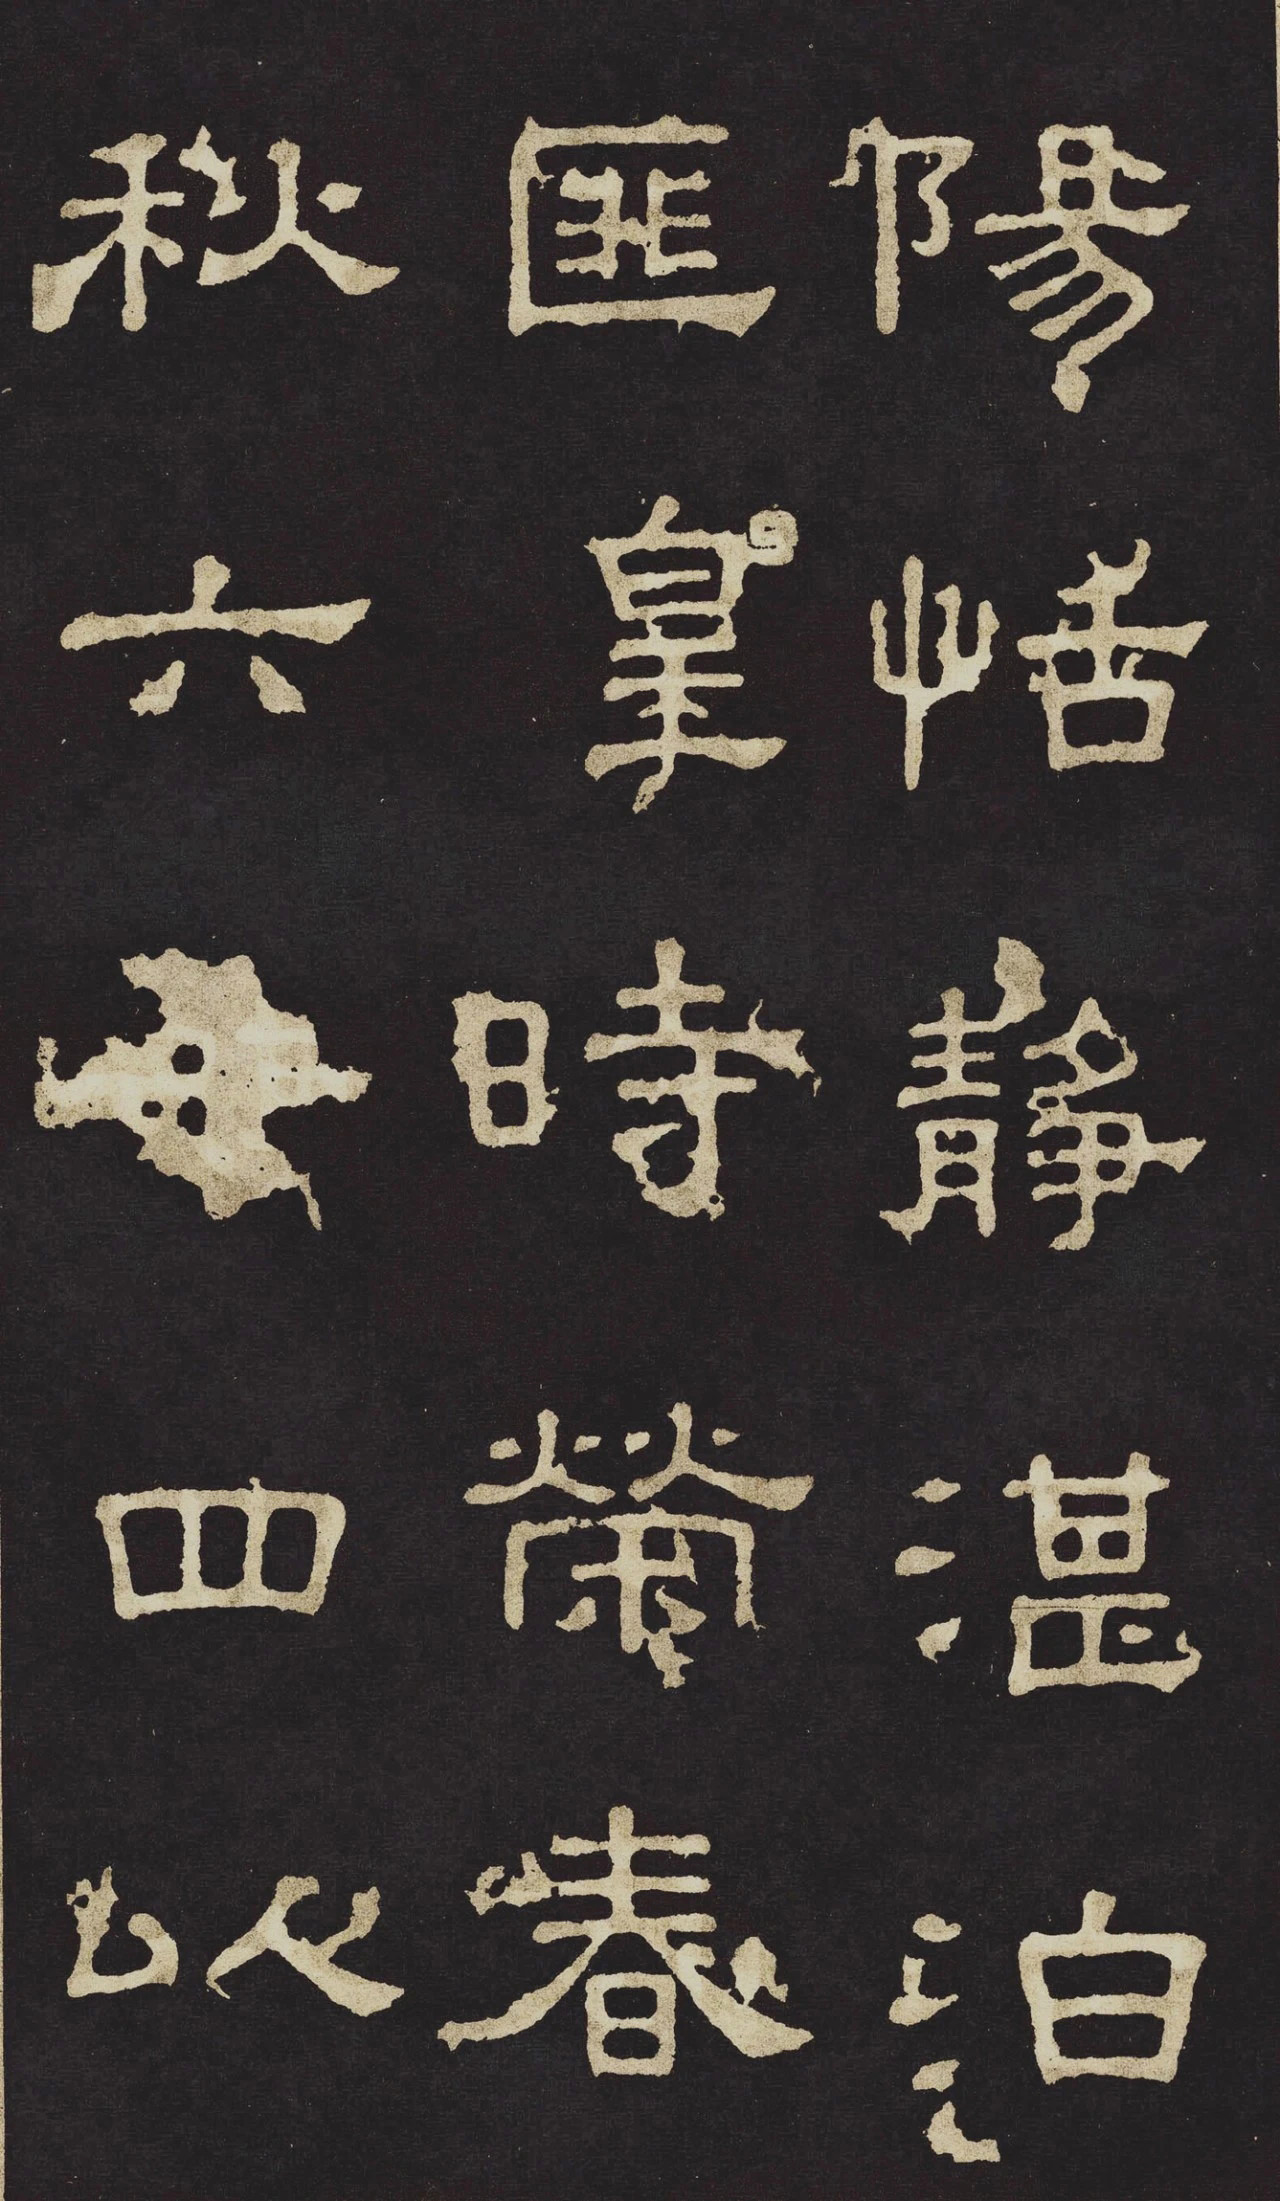 陽恬靜湛泊
匪時榮春
秋六四以